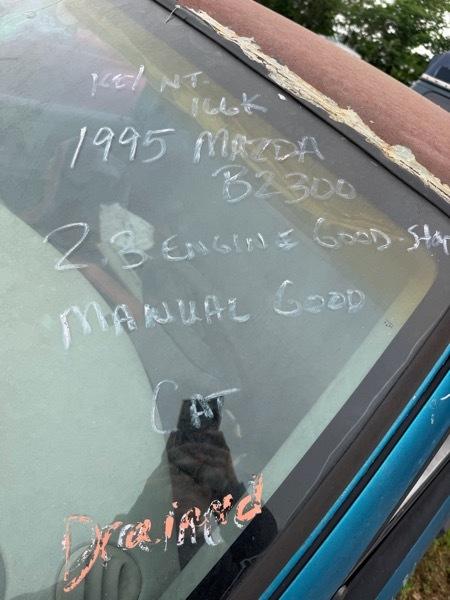 KEY NT.
166K
1995 MAZDA
B2300
2.3 ENGINE GOOD - Star
MANUAL GOOD
CAT
Drained